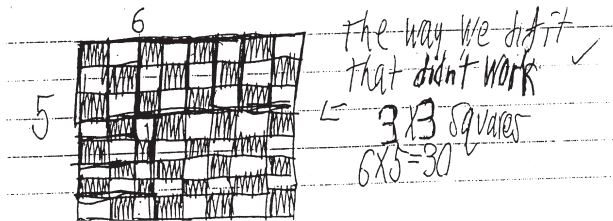 6
the way we did it
that didn't work ✓
5
3x3 squares
6x5=30